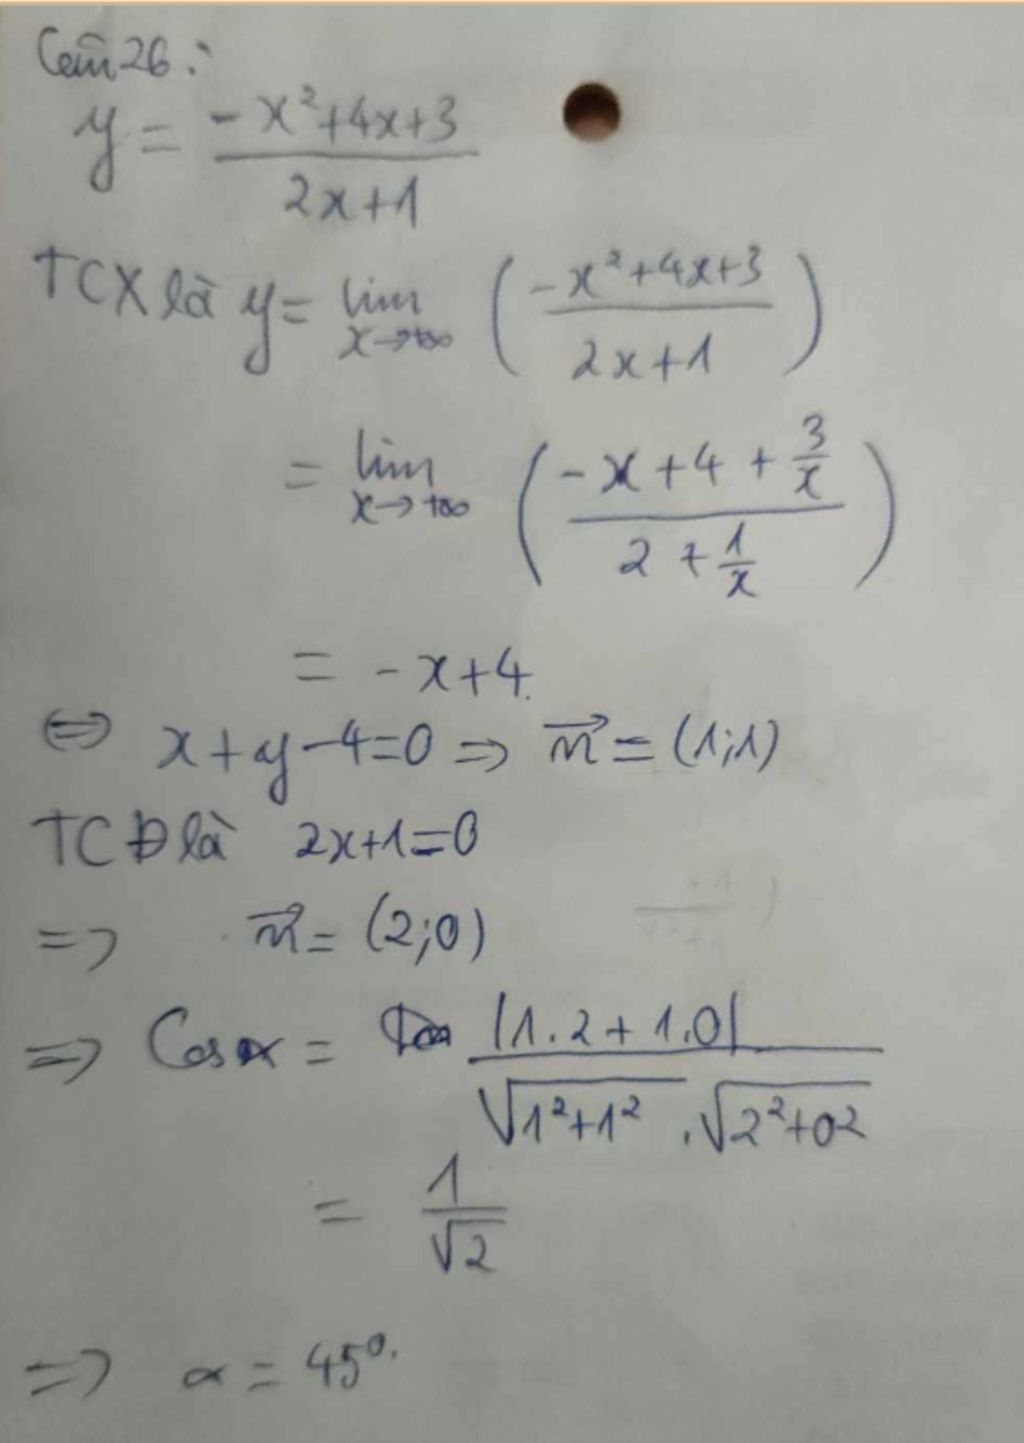 Câu 26:
y = \frac{-x²+4x+3}{2x+1}
TCX là y = lim_{x→+∞} ( \frac{-x²+4x+3}{2x+1} )
= lim_{x→+∞} ( \frac{-x+4+\frac{3}{x}}{2+\frac{1}{x}} )
= -x+4.
⇔ x+y-4=0 ⇒ \vec{n} = (1;1)
TCĐ là 2x+1=0
=> \vec{n} = (2;0)
=> Cosα = \frac{|1.2+1.0|}{\sqrt{1²+1²}.\sqrt{2²+0²}}
= \frac{1}{\sqrt{2}}
=> α = 45⁰.